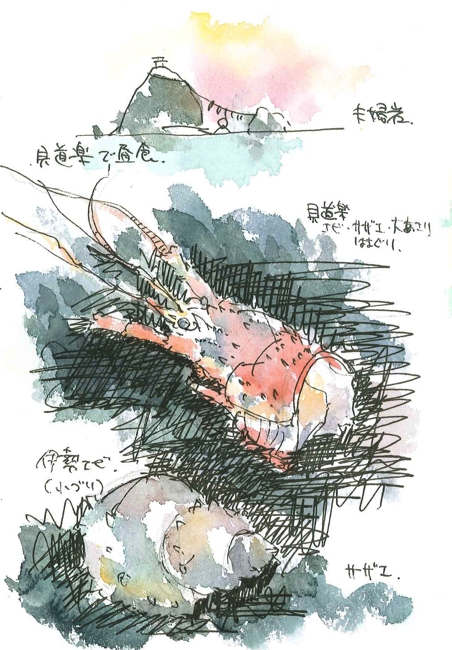 夫婦岩.
貝道楽で昼食.
貝道楽
エビ・サザエ・大あさり
はまぐり.
伊勢えび.
(小づり)
サザエ.